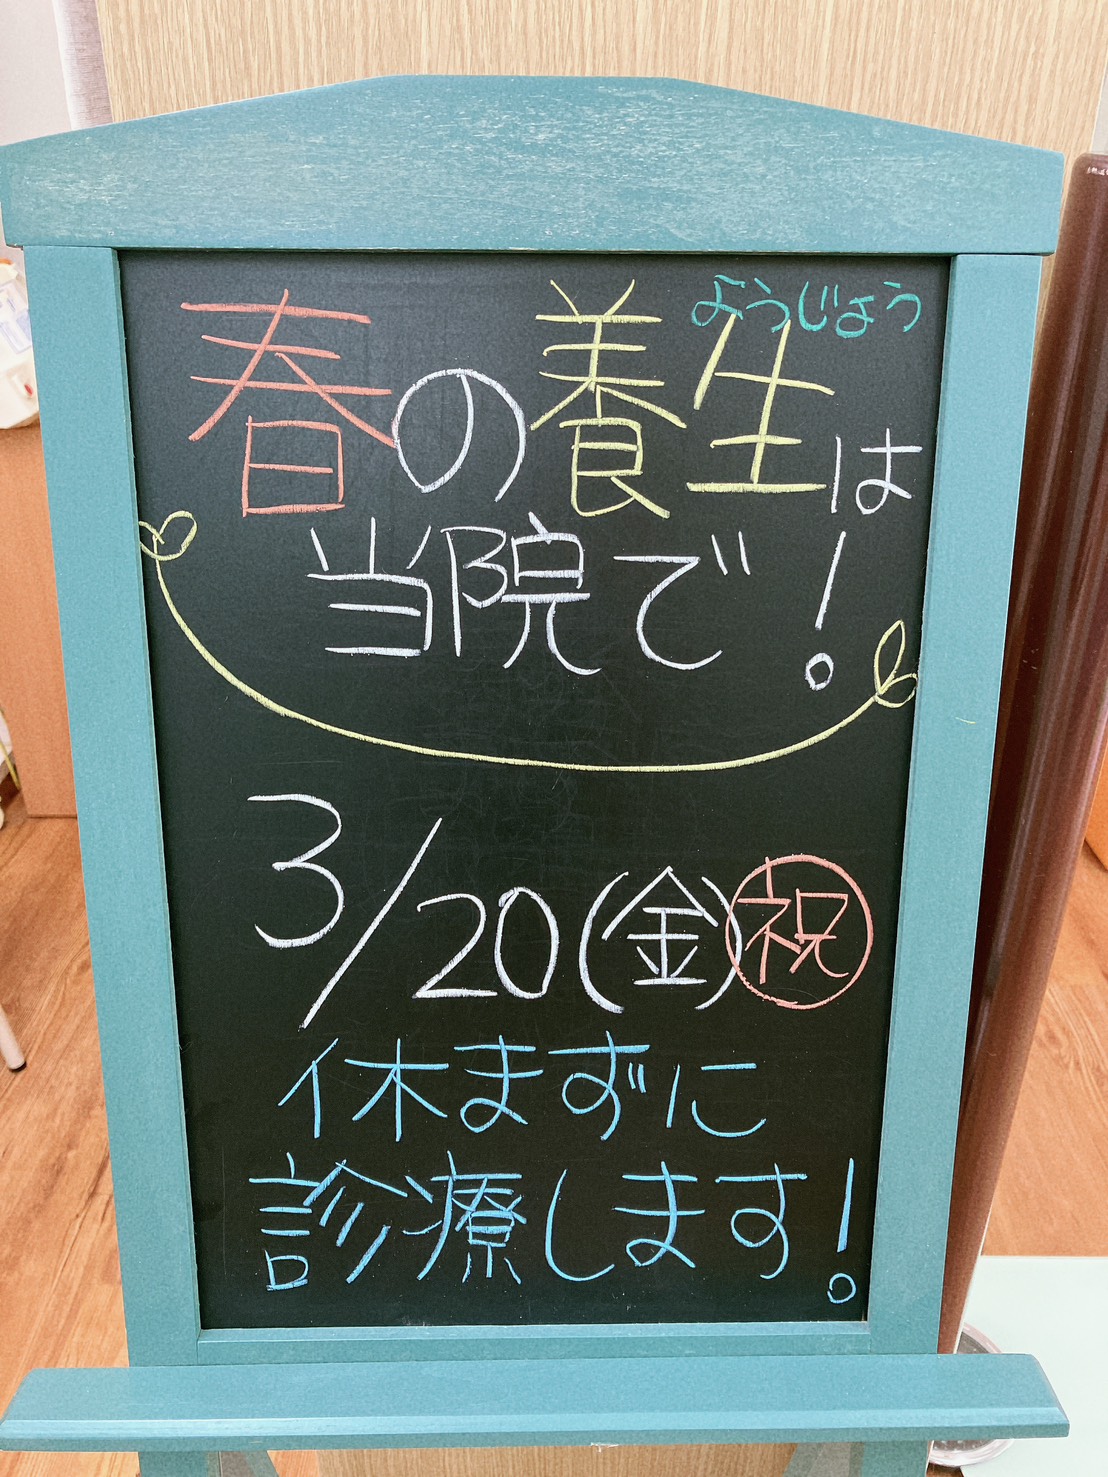 春の養生は
ようじょう
当院で!
3/20(金)祝
休まずに
診療します!